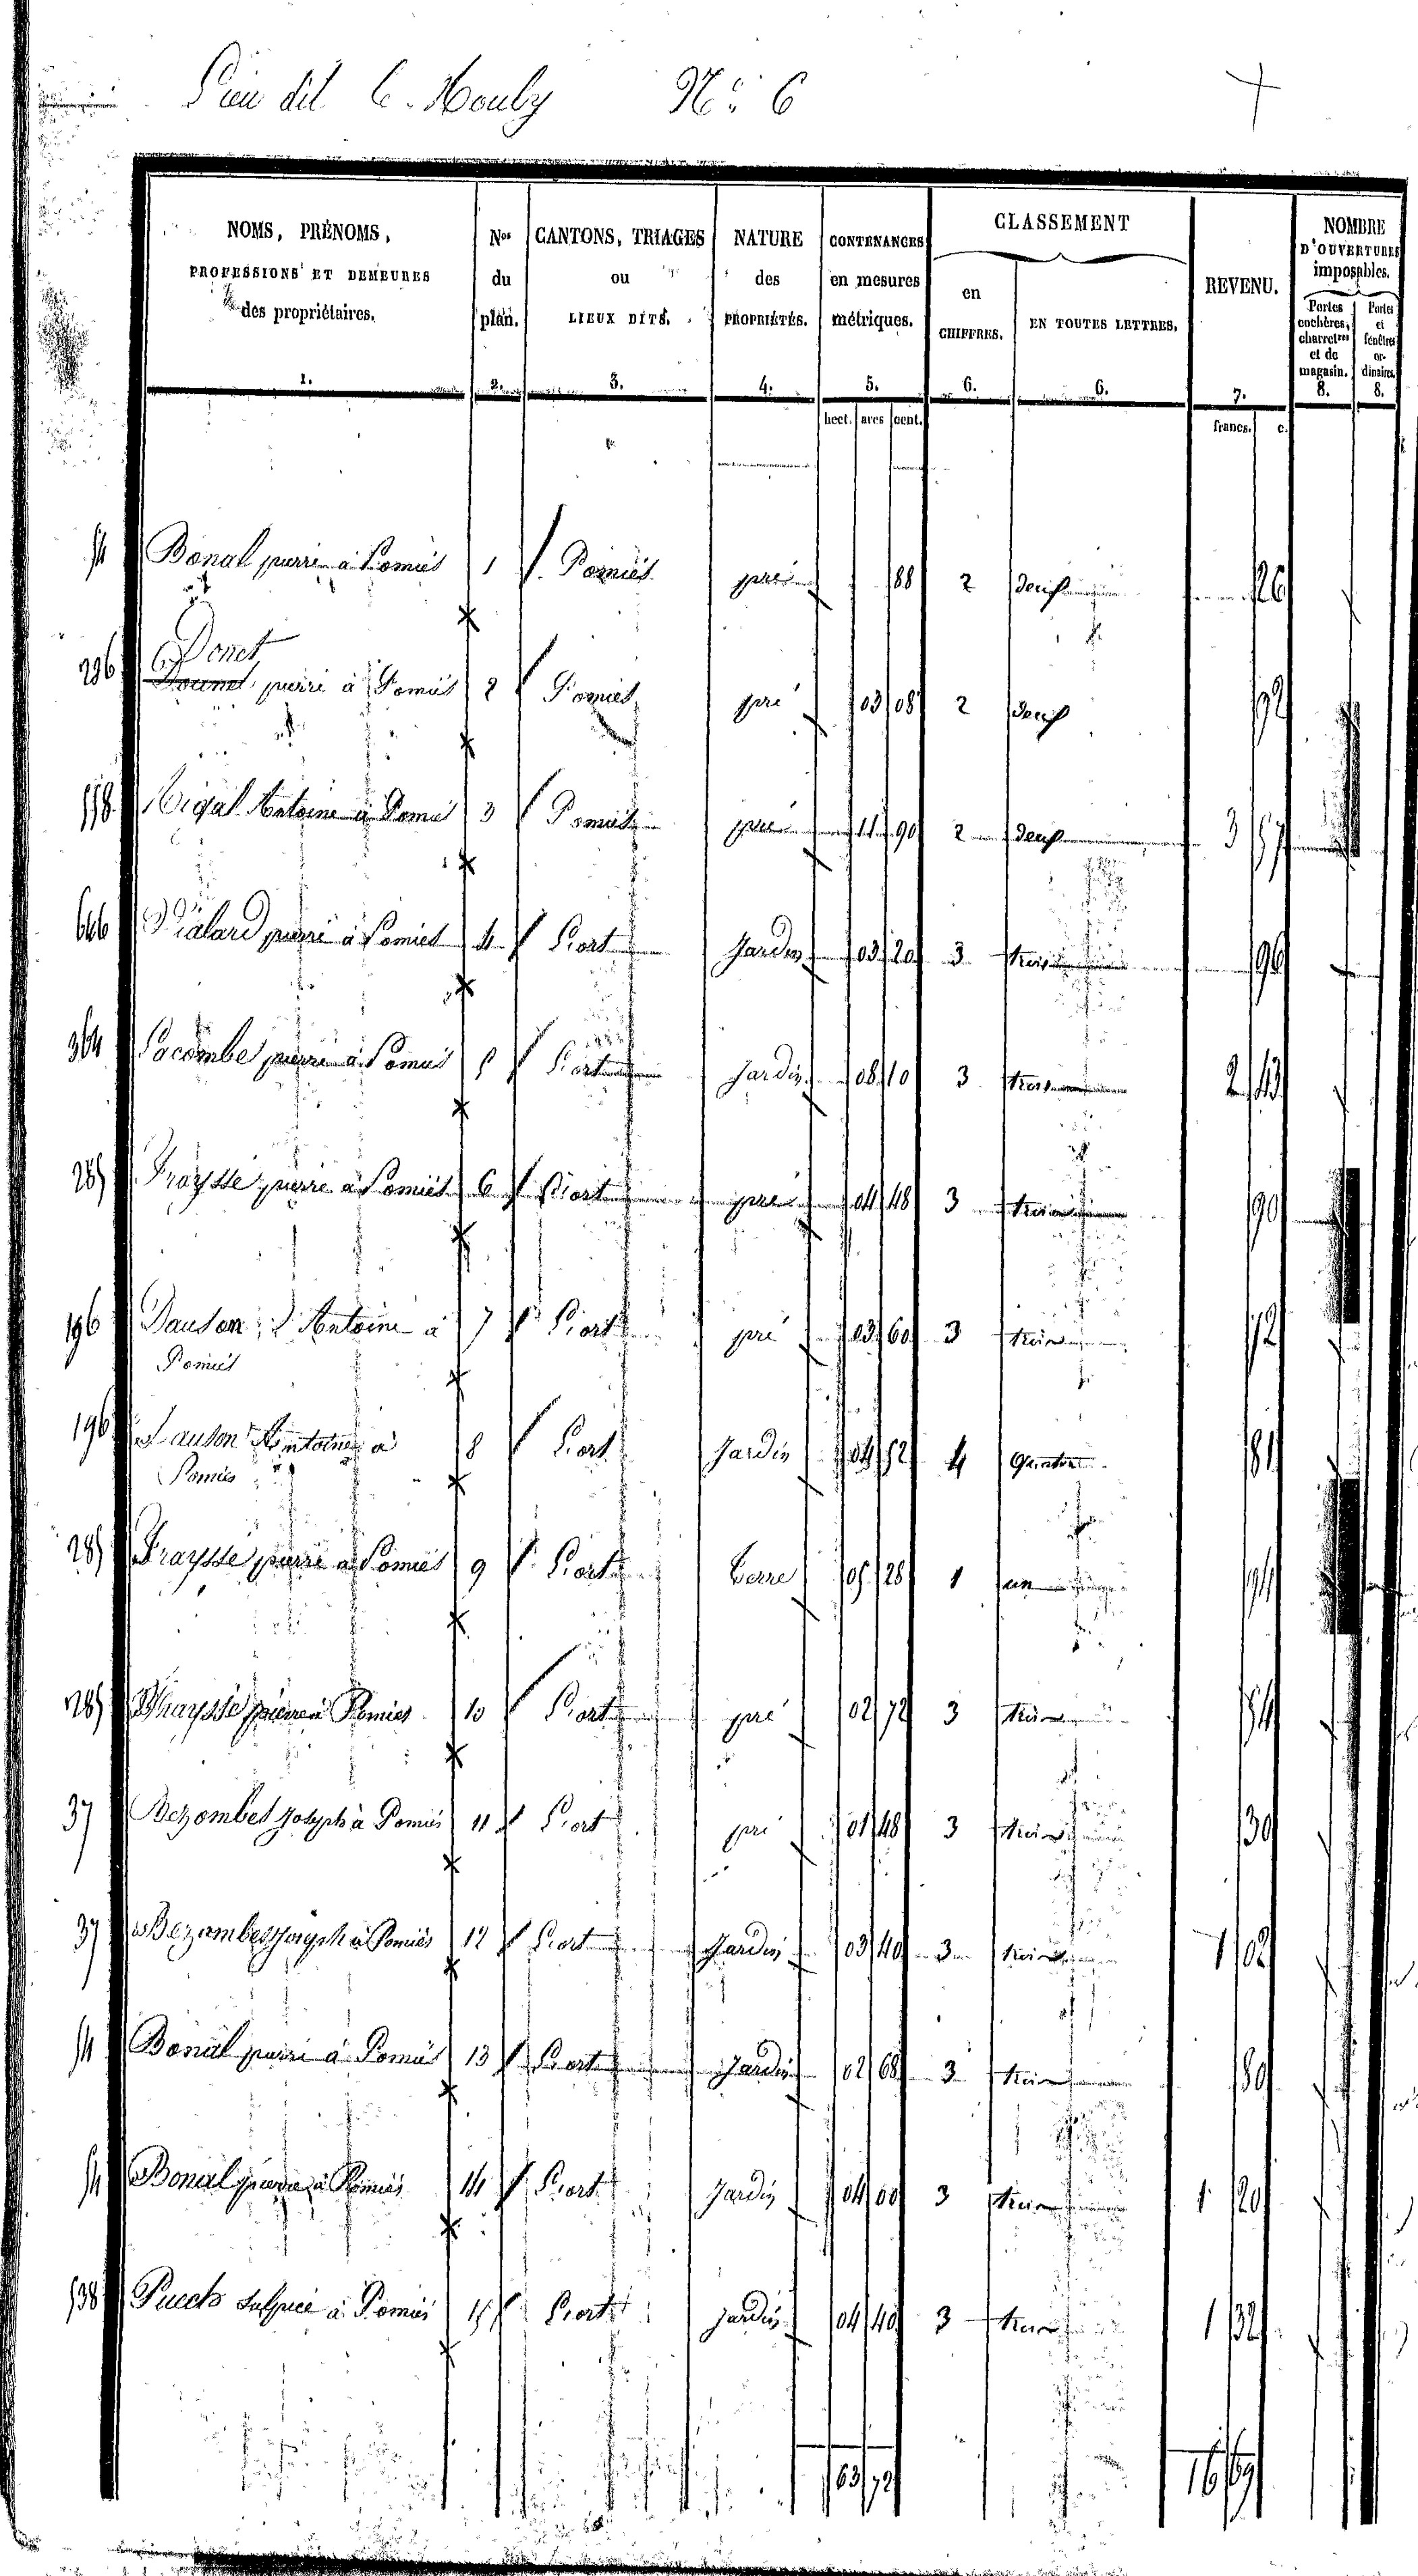 Lieu dit C. Mouly N.º 6
NOMS, PRÉNOMS,
PROFESSIONS ET DEMEURES
des propriétaires.
1.
Nos
du
plan.
2.
CANTONS, TRIAGES
ou
LIEUX DITS.
3.
NATURE
des
PROPRIÉTÉS.
4.
CONTENANCES
en mesures
métriques.
5.
CLASSEMENT
en
CHIFFRES.
6.
EN TOUTES LETTRES.
6.
REVENU.
7.
NOMBRE
D'OUVERTURES
imposables.
Portes
cochères,
charretres
et de
magasin.
8.
Portes
et
fenêtres
or-
dinaires.
8.
hect. ares cent. francs. c.
Bonal pierre à Pomiés 1 Pomiés pré 88 2 deux 26
Donet
196 pierre à Pomiés 2 Pomiés pré 03 08 2 deux 92
Antoine à Pomiés 3 Pomiés pré 11 90 2 deux 3 57
646 pierre à Pomiés 4 Port Jardin 03 20 3 trois 96
364 Lacombe pierre à Pomiés 5 Port Jardin 08 10 3 trois 2 43
285 Fraysse pierre à Pomiés 6 Port pré 04 48 3 trois 90
196 Dauson Antoine à 7 Port pré 03 60 3 trois 72
Pomiés
196 Dauson Antoine à 8 Port Jardin 04 52 4 quatre 81
Pomiés
285 Fraysse pierre à Pomiés 9 Port terre 05 28 1 un
285 Fraysse pierre à Pomiés 10 Port pré 02 72 3 trois 54
37 Bezombes Joseph à Pomiés 11 Port pré 01 48 3 trois 30
37 Bezombes Joseph à Pomiés 12 Port Jardin 03 40 3 trois 1 02
Bonal pierre à Pomiés 13 Port Jardin 02 68 3 trois 80
Bonal pierre à Pomiés 14 Port Jardin 04 00 3 trois 1 20
538 Puech à Pomiés 15 Port jardin 04 40 3 trois 1 32
63 72 16 69